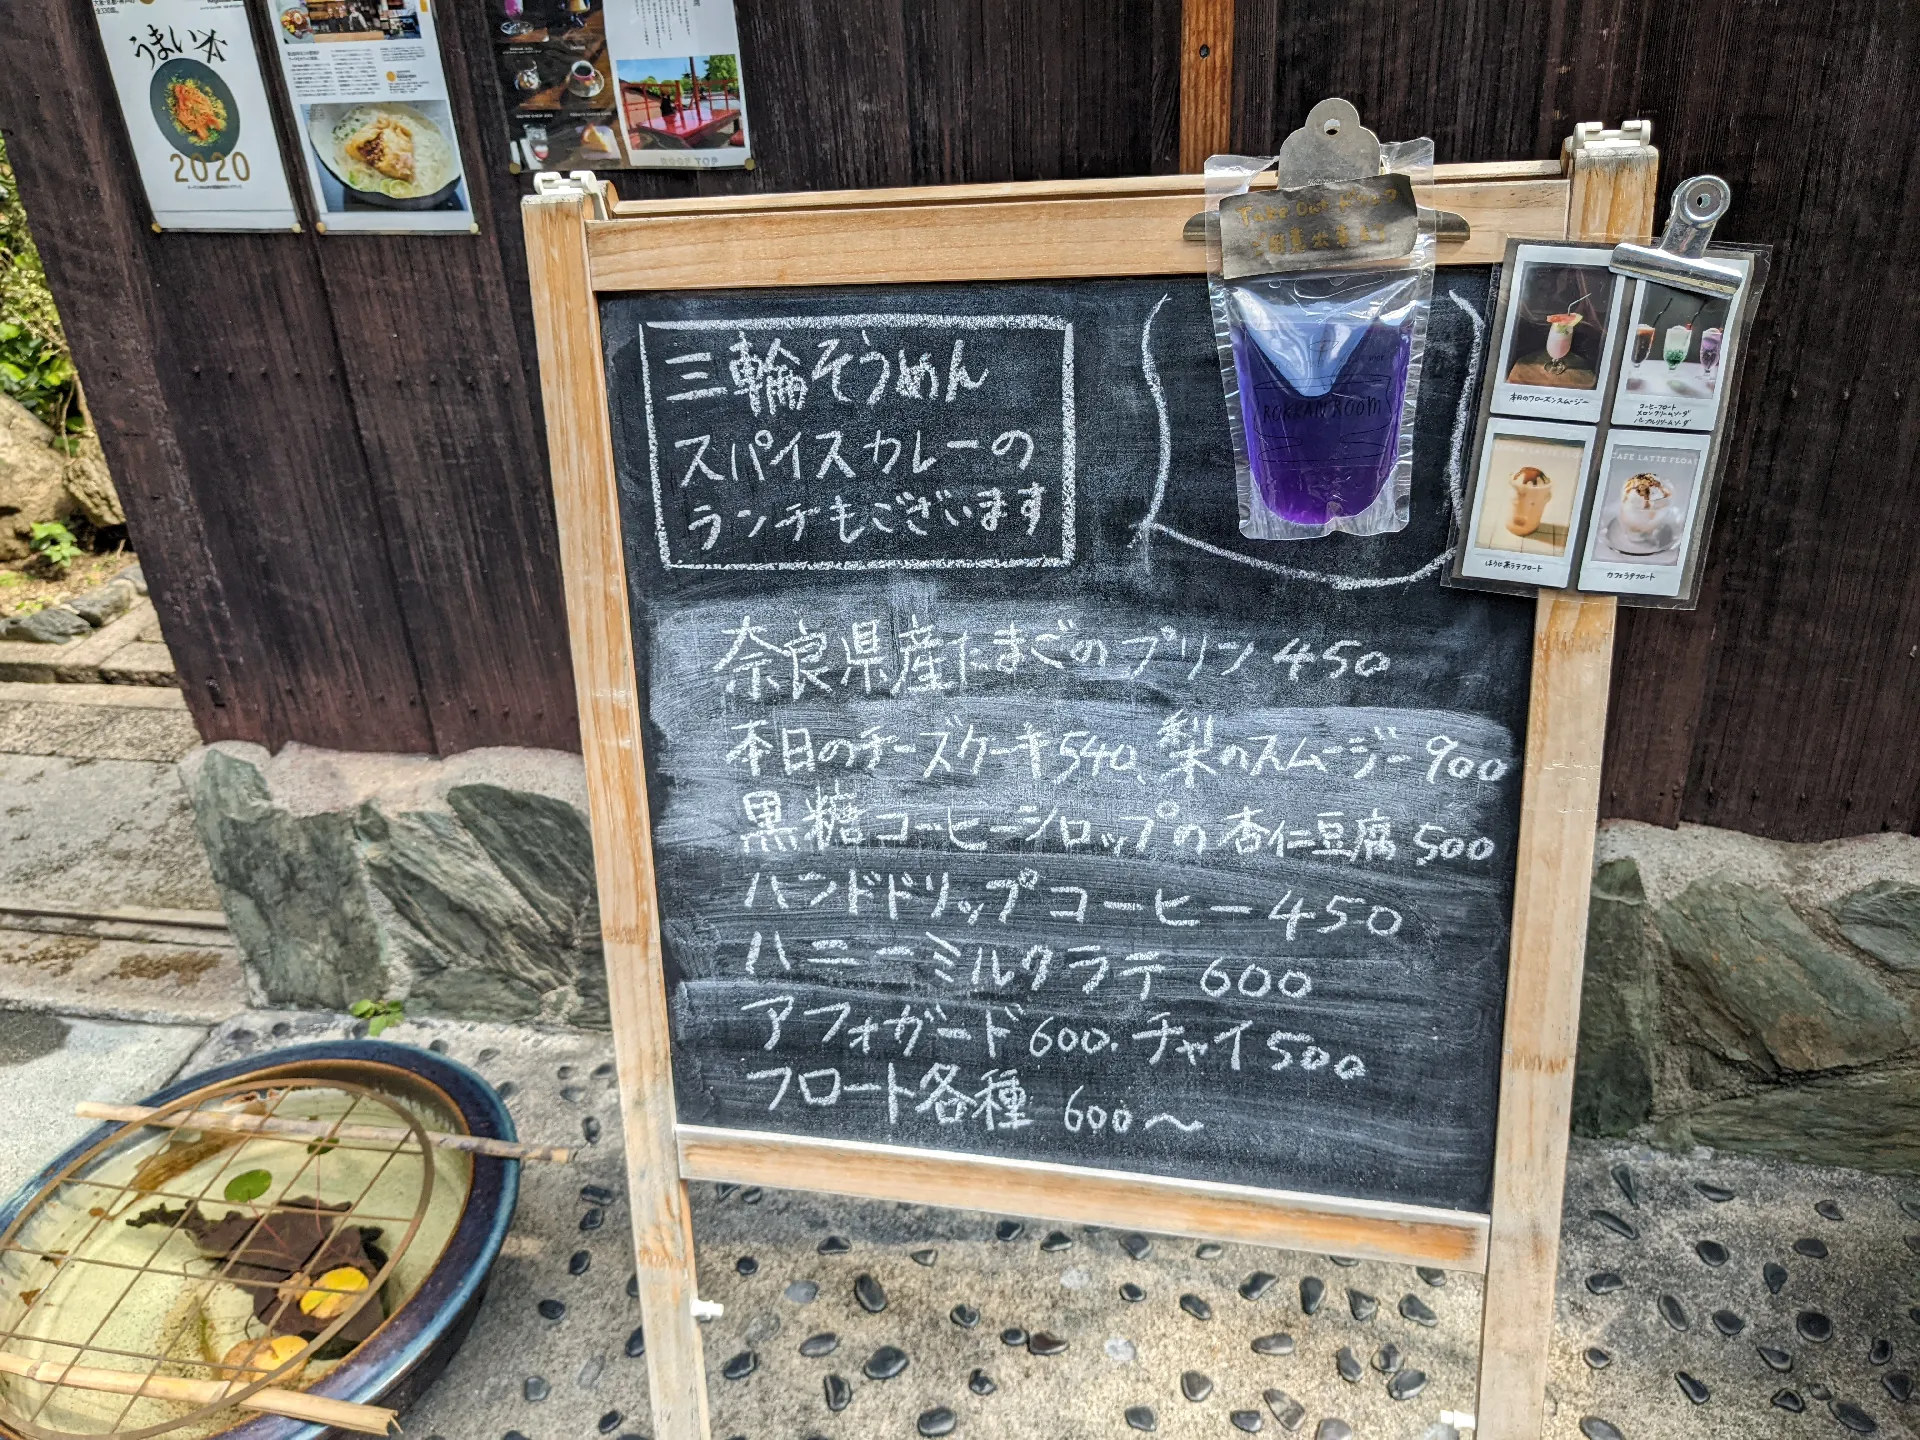 うまい本
2020
ROOF TOP
Take Out ドリンク
三輪そうめん
スパイスカレーの
ランチもございます
ROKKAN ROOM
本日のフローズンスムージー
コーヒーフロート
メロンクリームソーダ
パープルクリームソーダ
ほうじ茶ラテフロート
CAFE LATTE FLOAT
カフェラテフロート
奈良県産たまごのプリン 450
本日のチーズケーキ540、梨のスムージー900
黒糖コーヒーシロップの杏仁豆腐 500
ハンドドリップコーヒー450
ハニーミルクラテ 600
アフォガード600.チャイ500
フロート各種 600〜